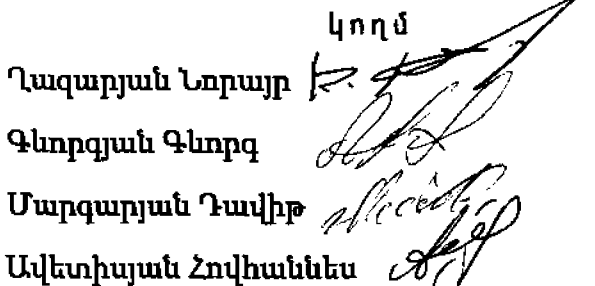 կողմ
Ղազարյան Նորայր
Գևորգյան Գևորգ
Մարգարյան Դավիթ
Ավետիսյան Հովհաննես